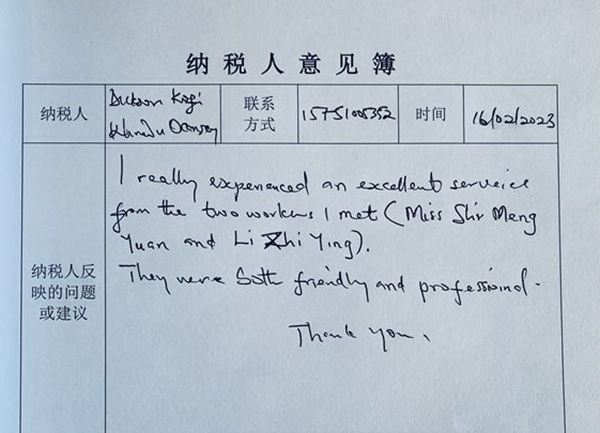 纳税人意见簿
纳税人
联系方式
15751005352
时间
16/02/2023
纳税人反映的问题或建议
I really experienced an excellent serveies
from the two workers I met (Miss Shi Meng
Yuan and Li Zhi Ying).
They were both friendly and professional.
Thank you.